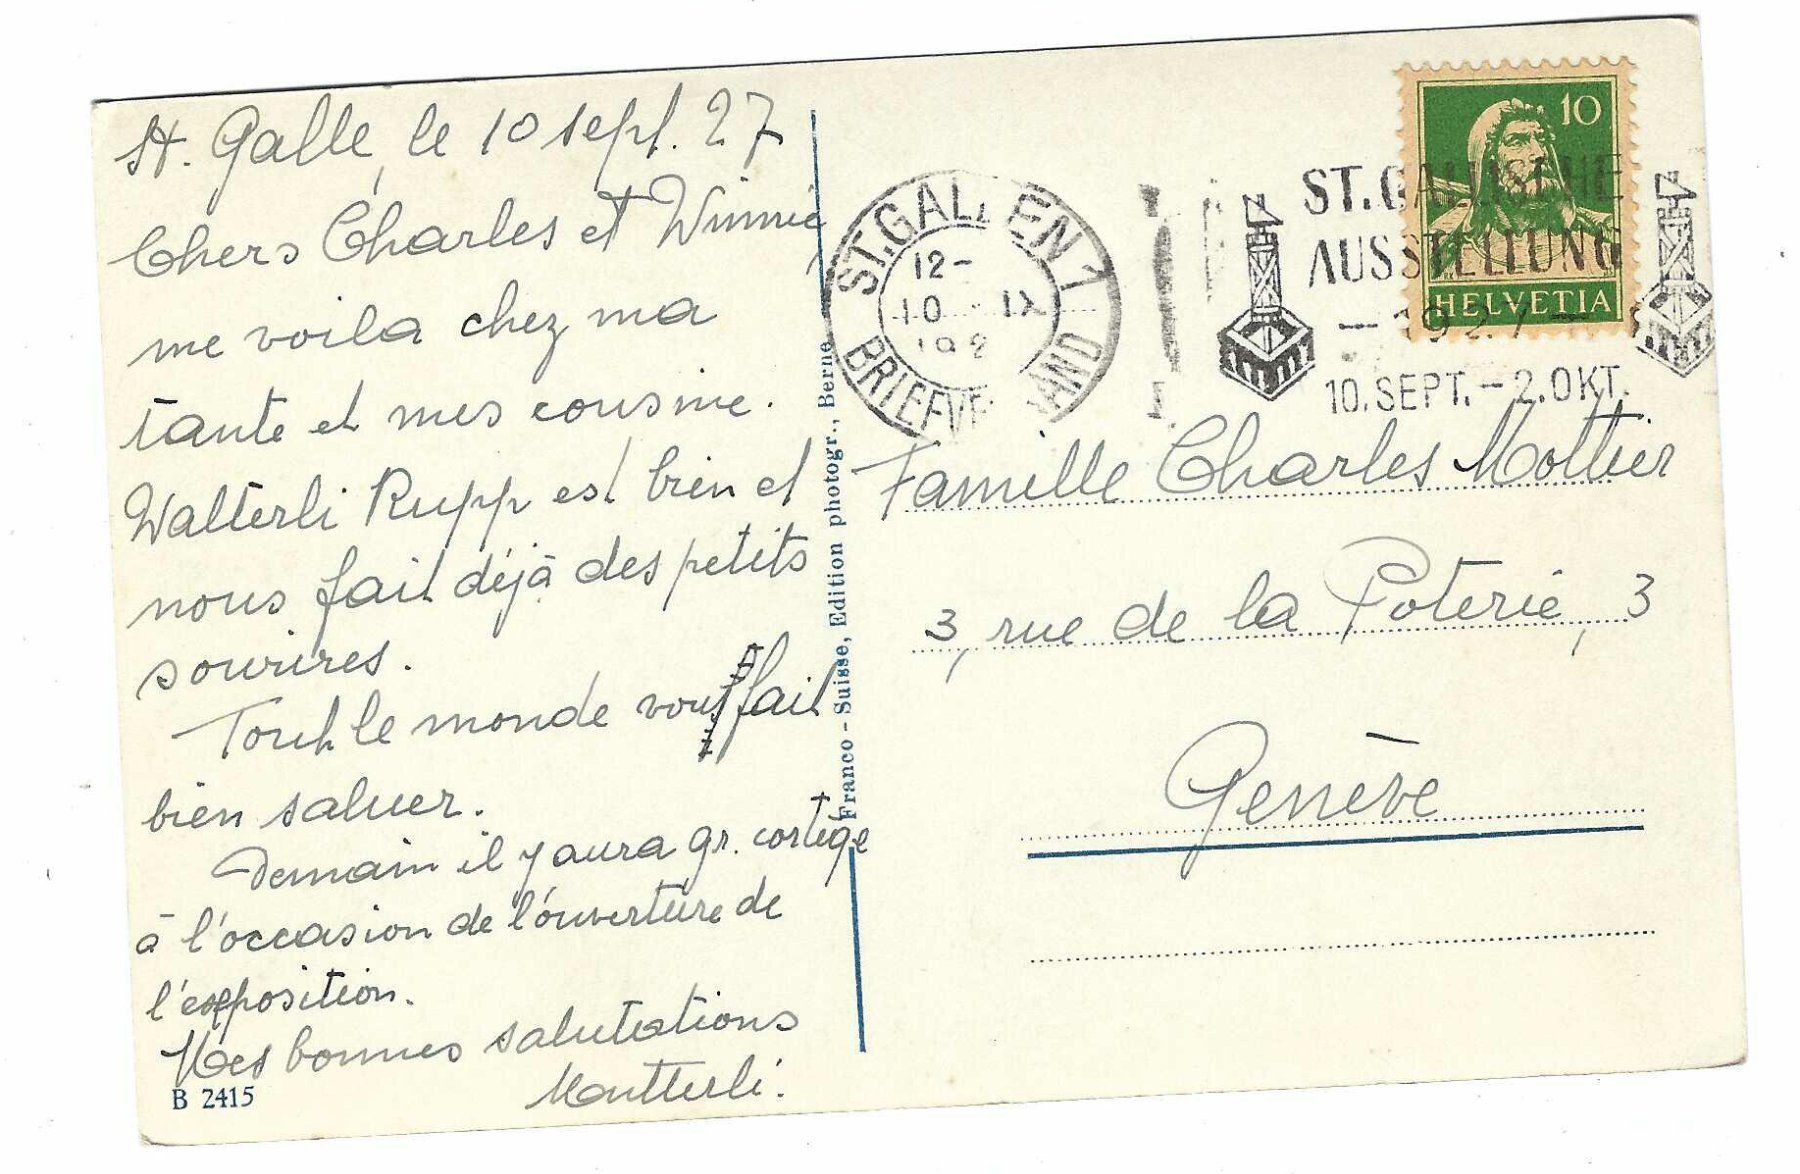 St. Galle, le 10 sept. 27
Chers Charles et Winnie,
me voila chez ma
tante et mes cousine.
Walterli Rupp est bien et
nous fait déjà des petits
sourires.
Tout le monde vous fait
bien saluer.
Demain il y aura gr. cortège
à l'occasion de l'ouverture de
l'exposition.
Mes bonnes salutations
Mutterli.
B 2415
Franco-Suisse, Edition photogr., Berne
ST. GALLEN 1
12-
10. IX
192
BRIEFVERSAND
ST. GALLISCHE
AUSSTELLUNG
- 1927 -
10. SEPT. - 2. OKT.
10
HELVETIA
Famille Charles Mottier
3, rue de la Poterie, 3
Genève